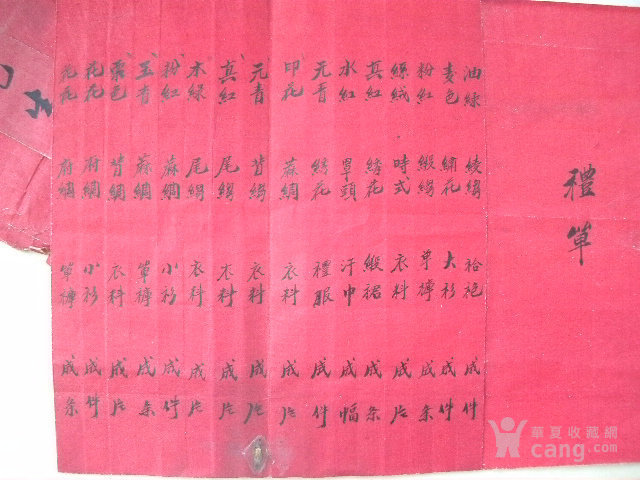 禮單
油綠 綾縐 袷袍 成件
麦色 繡花 大衫 成件
粉紅 緞縐 單褲 成条
絲絨 時式 衣料 成片
真紅 綉花 緞裙 成条
水紅 罩頭 汗巾 成幅
元青 綉花 禮服 成件
印花 蔴綢 衣料 成片
元青 背縐 衣料 成片
真紅 尾縐 衣料 成片
木綠 尾縐 衣料 成片
粉紅 蔴綢 小衫 成件
玉青 蔴綢 單褲 成条
栗色 背綢 衣料 成片
花花 府綢 小衫 成件
花花 府綢 單褲 成条
華夏收藏網
cang.com